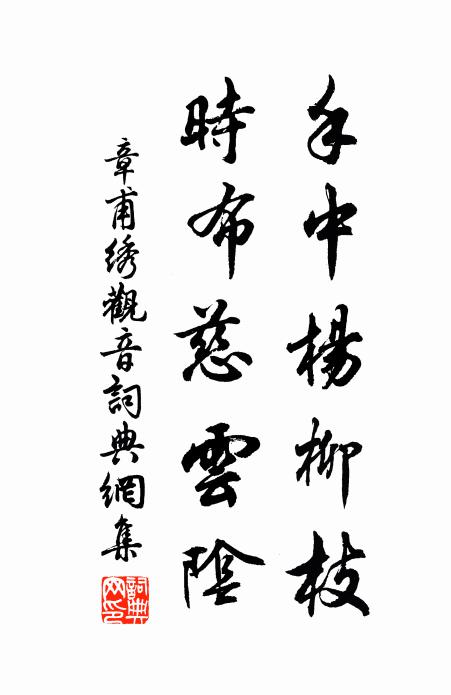 手中楊柳枝
時布慈雲陰
章甫绣觀音詞典網集
詞典网印